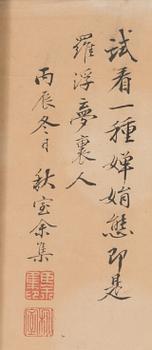 試看一種嬋娟態即是
羅浮夢裏人
丙辰冬日秋室余集